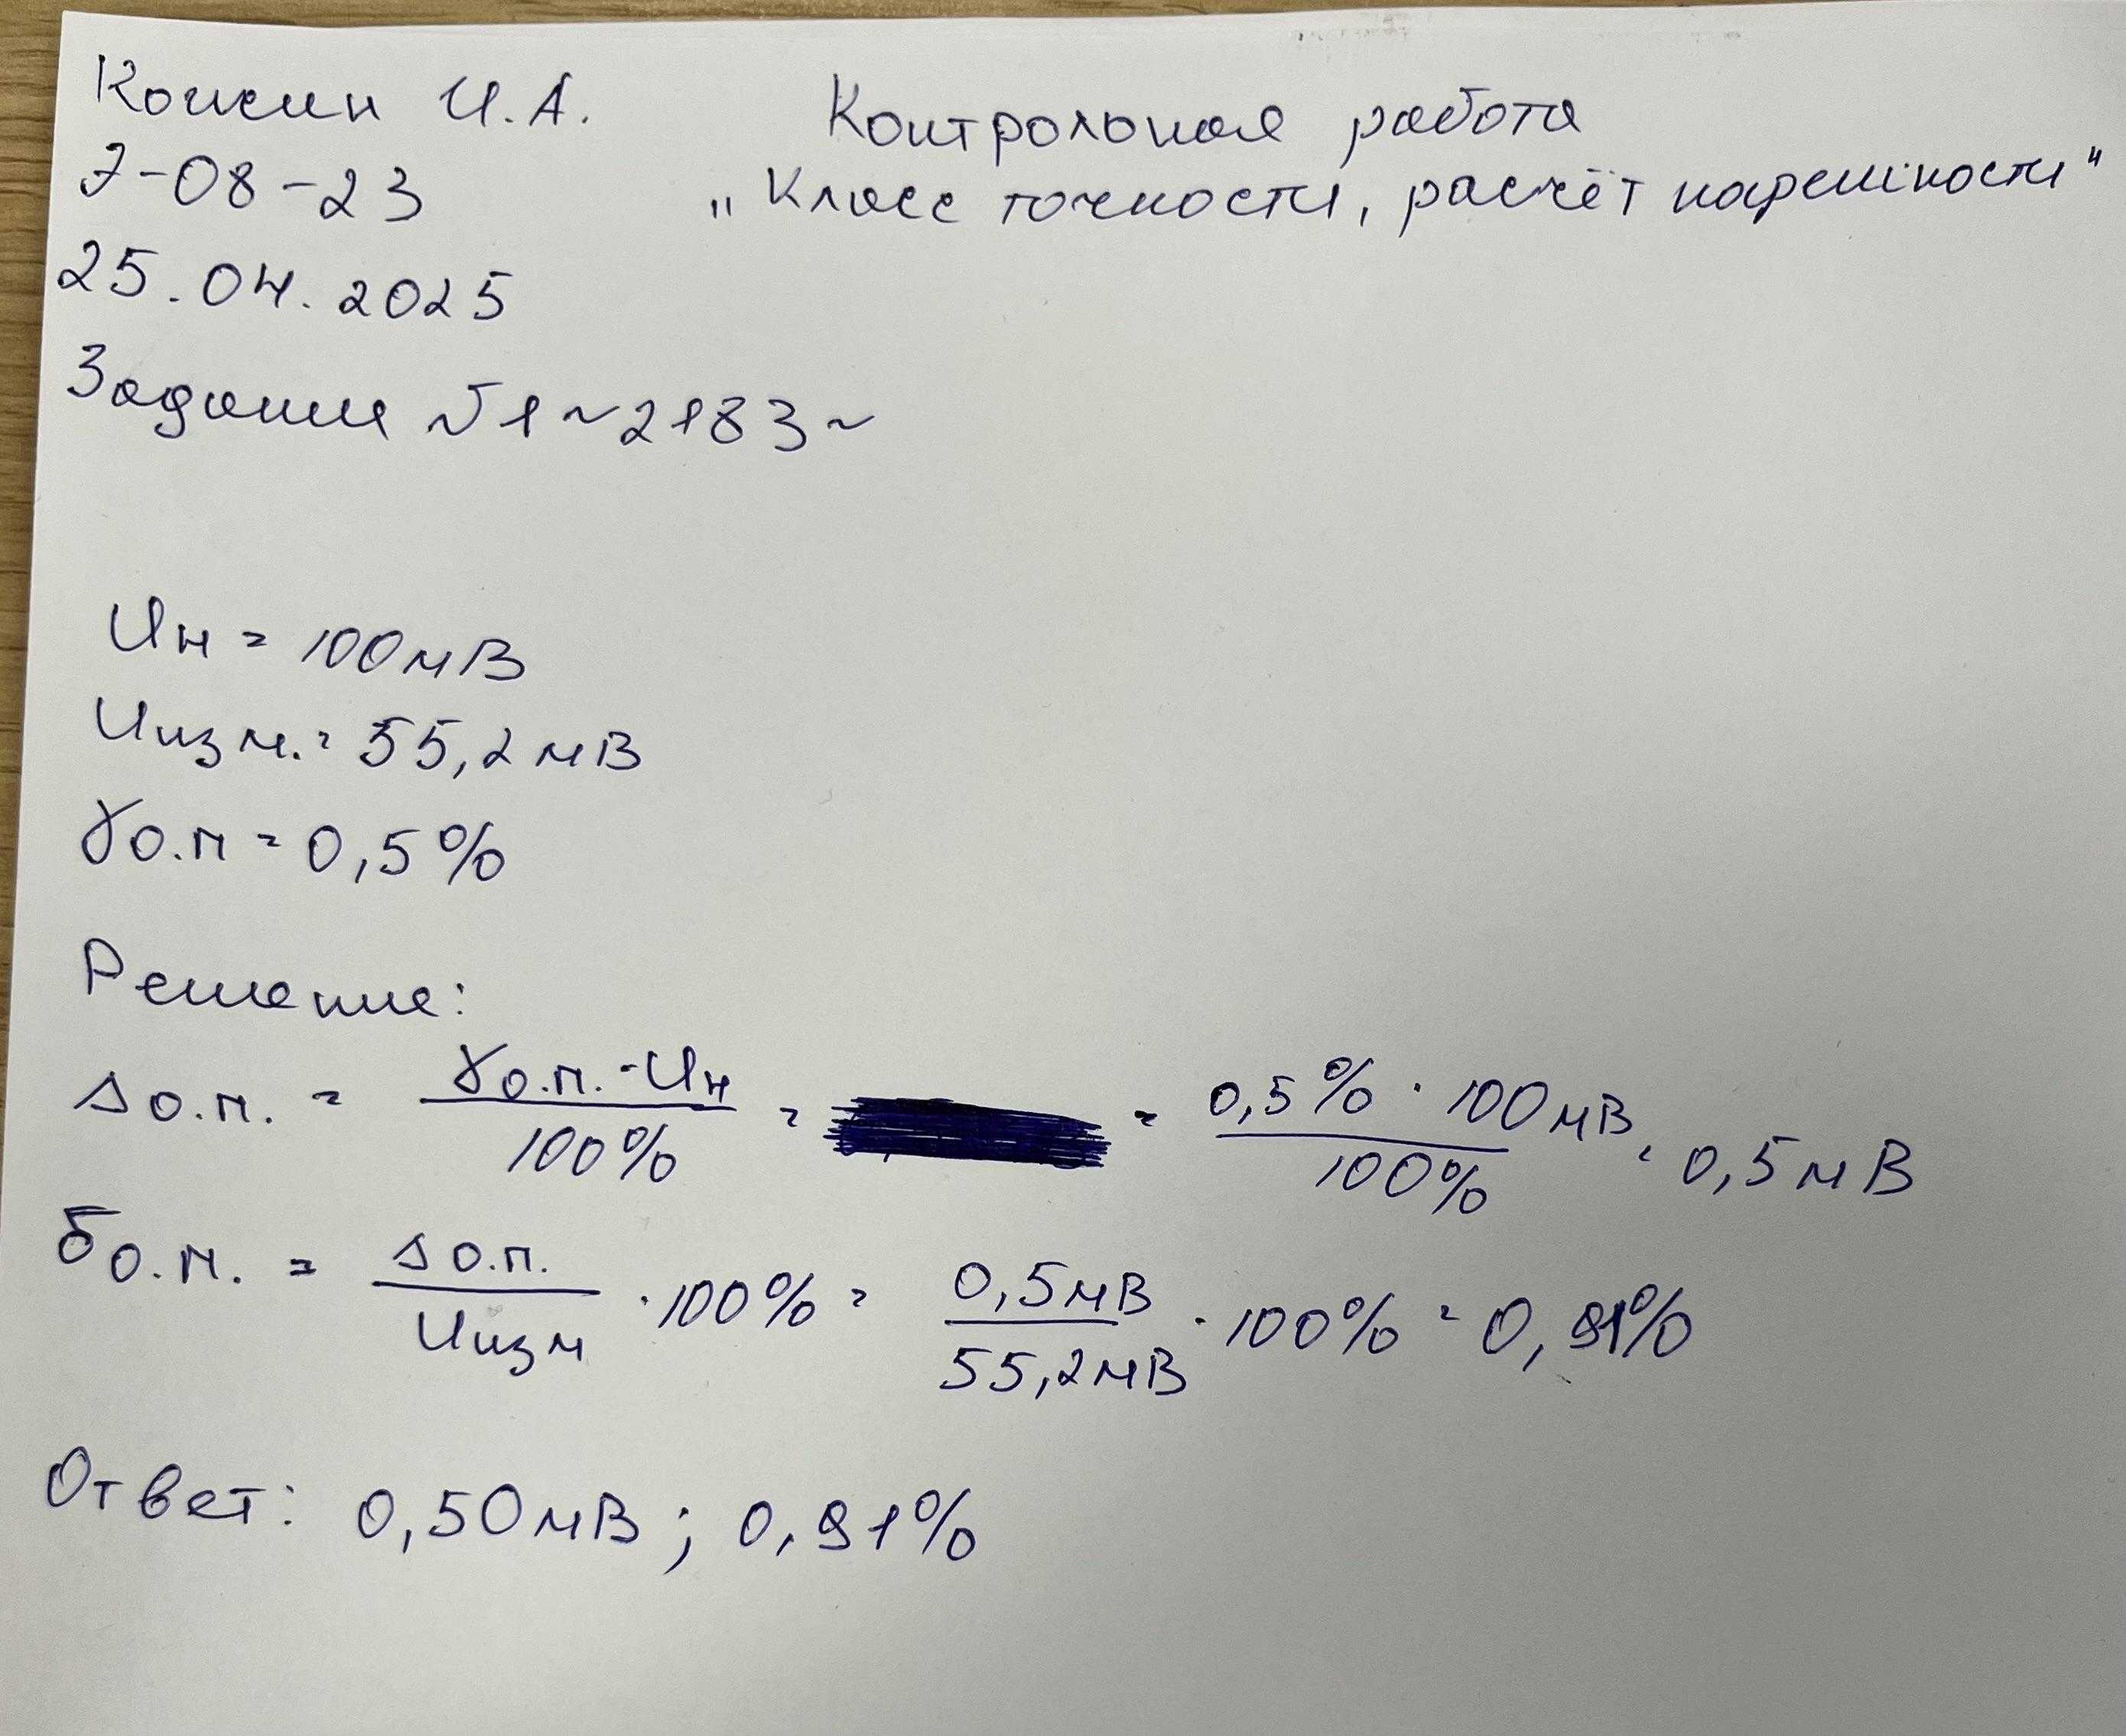 Кошкин И.А.
Контрольная работа
Э-08-23
"Класс точности, расчёт погрешности"
25.04.2025
Задание №1 ~2183~
Uн = 100 мВ
Uизм. = 55,2 мВ
γо.п = 0,5%
Решение:
Δо.п. = γо.п. · Uн / 100% = = 0,5% · 100 мВ / 100% = 0,5 мВ
δо.п. = Δо.п. / Uизм · 100% = 0,5 мВ / 55,2 мВ · 100% = 0,91%
Ответ: 0,50 мВ; 0,91%